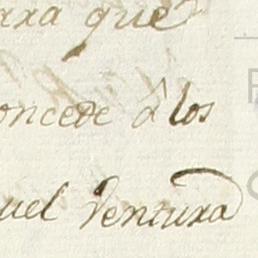 ara que
oncede â los
uel Ventura